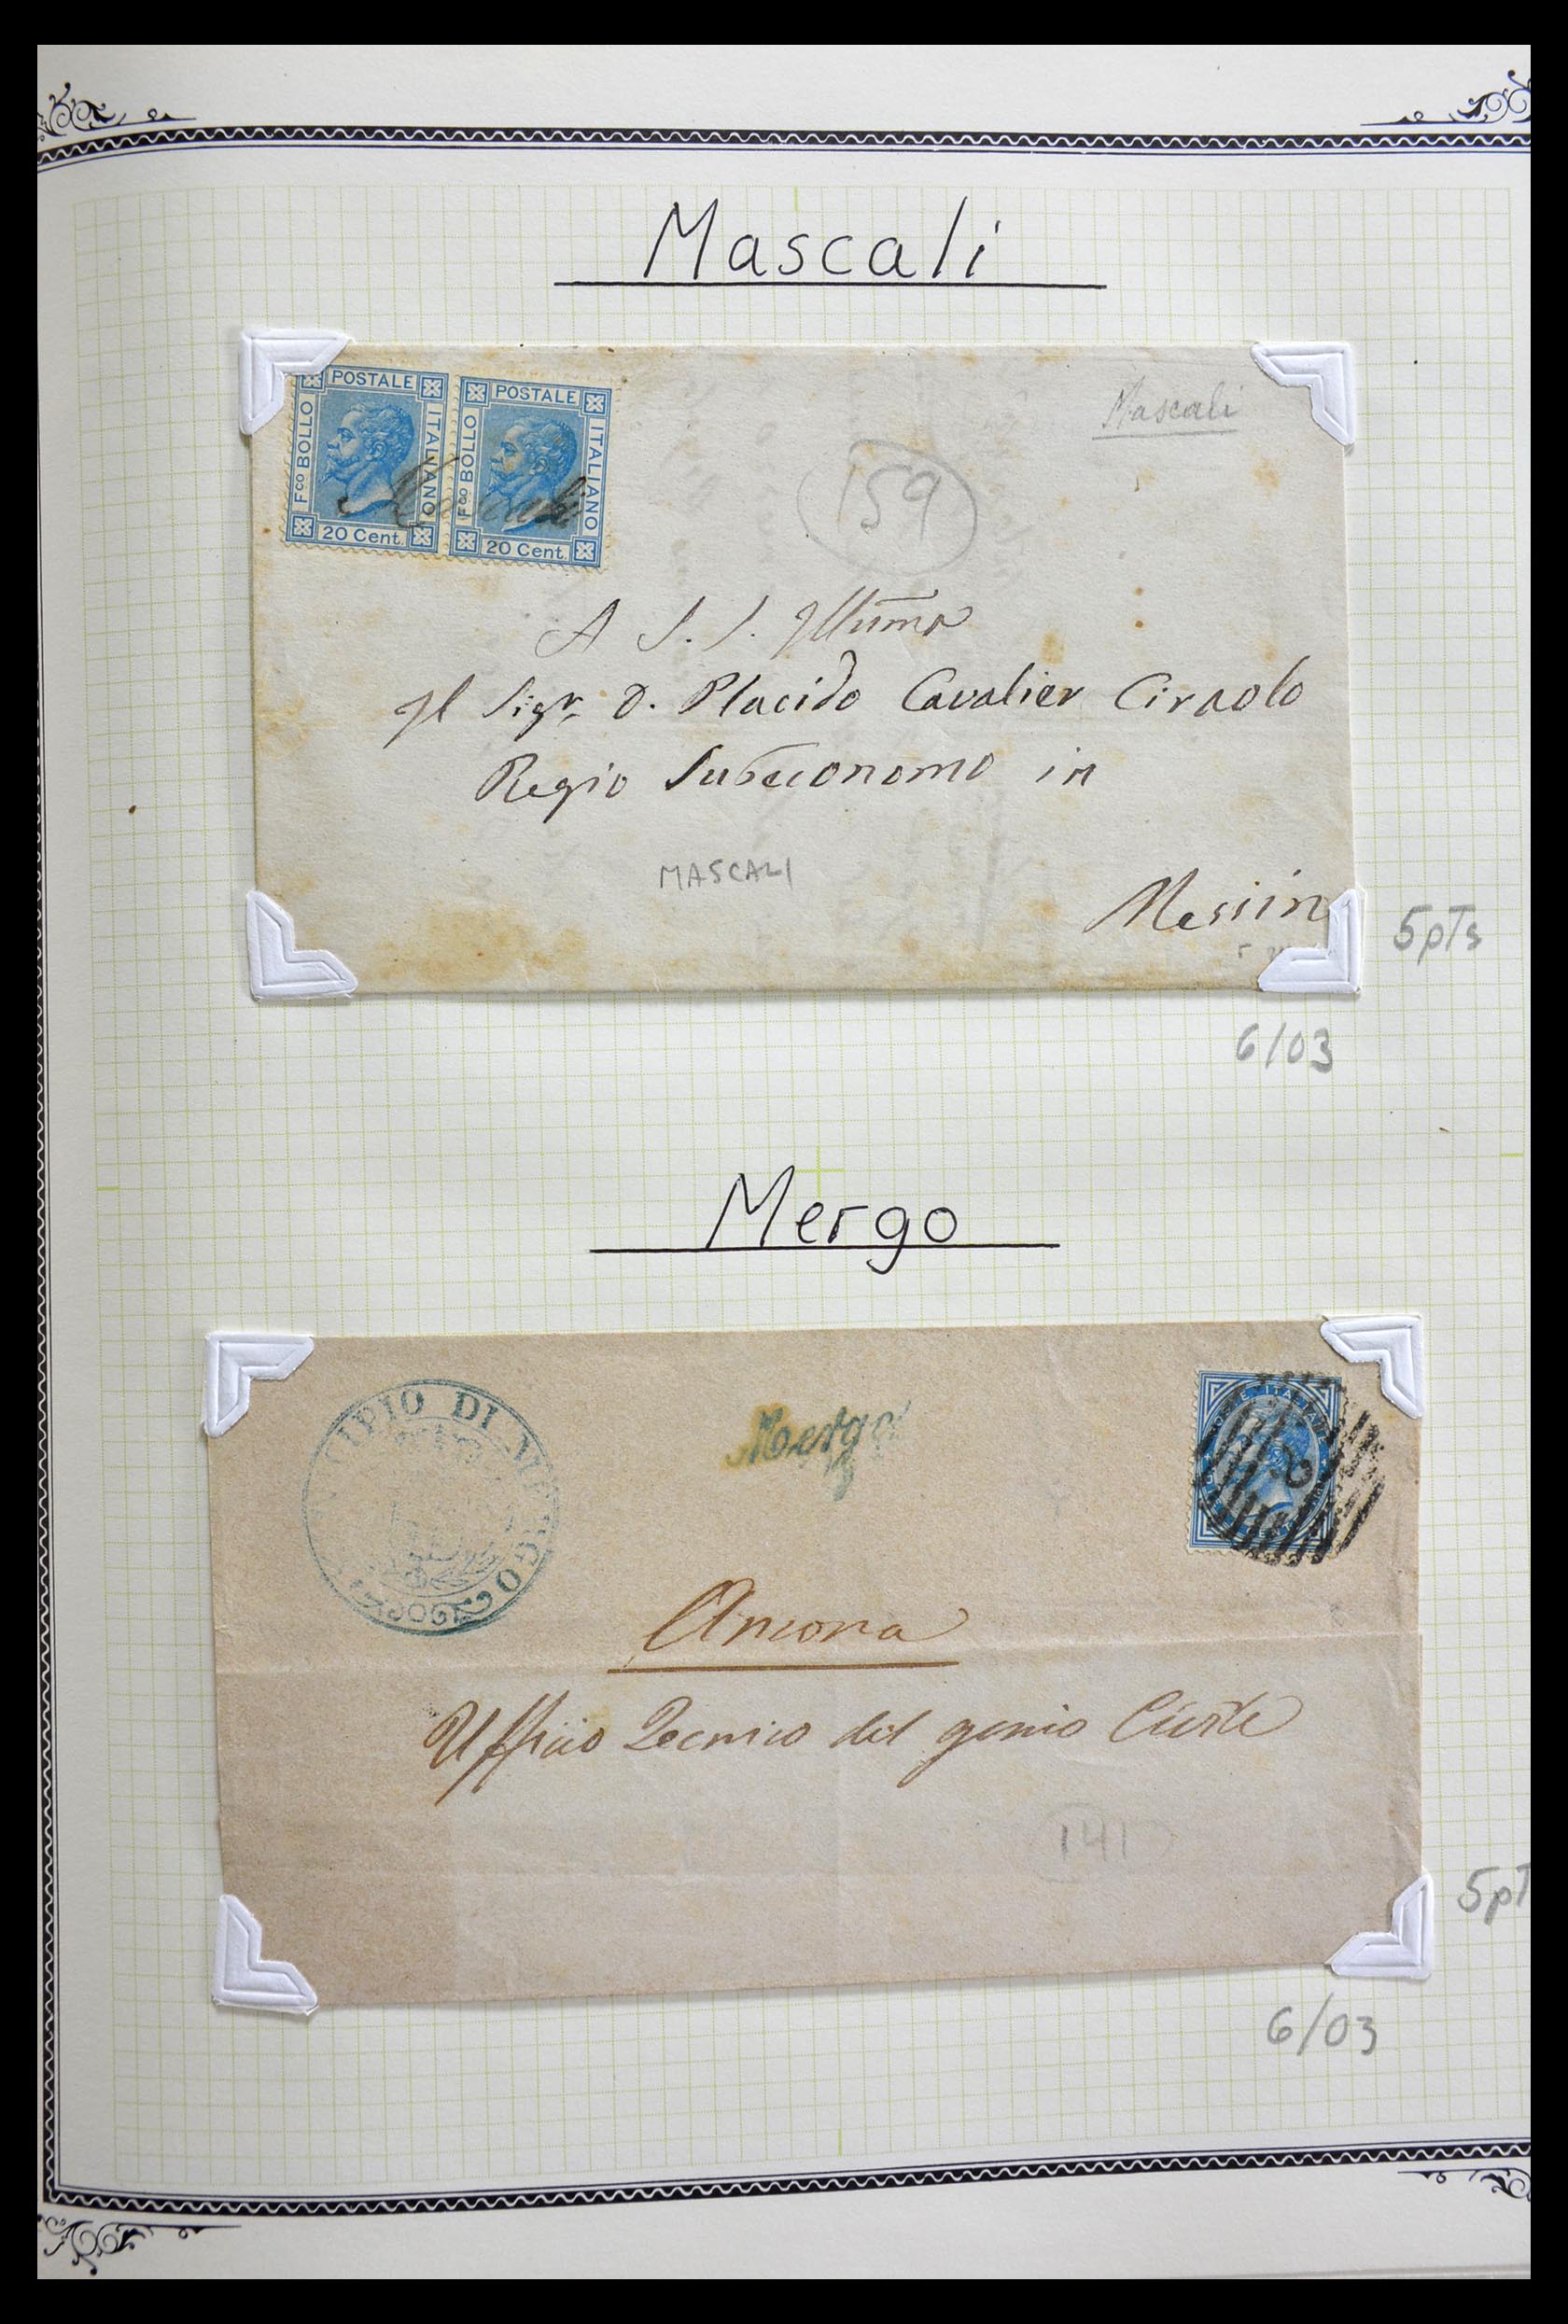 Mascali
POSTALE
Fco BOLLO
ITALIANO
20 Cent.
POSTALE
Fco BOLLO
ITALIANO
20 Cent.
Mascali
Mascali
159
A S. S. Illuma
Il Sigr. D. Placido Cavalier Ciraolo
Regio Subeconomo in
MASCALI
Messin
5pTs
6/03
Mergo
CIPIO DI ME GO
Mergo
2
Ancona
Ufficio Tecnico del genio Civile
141
5pT
6/03